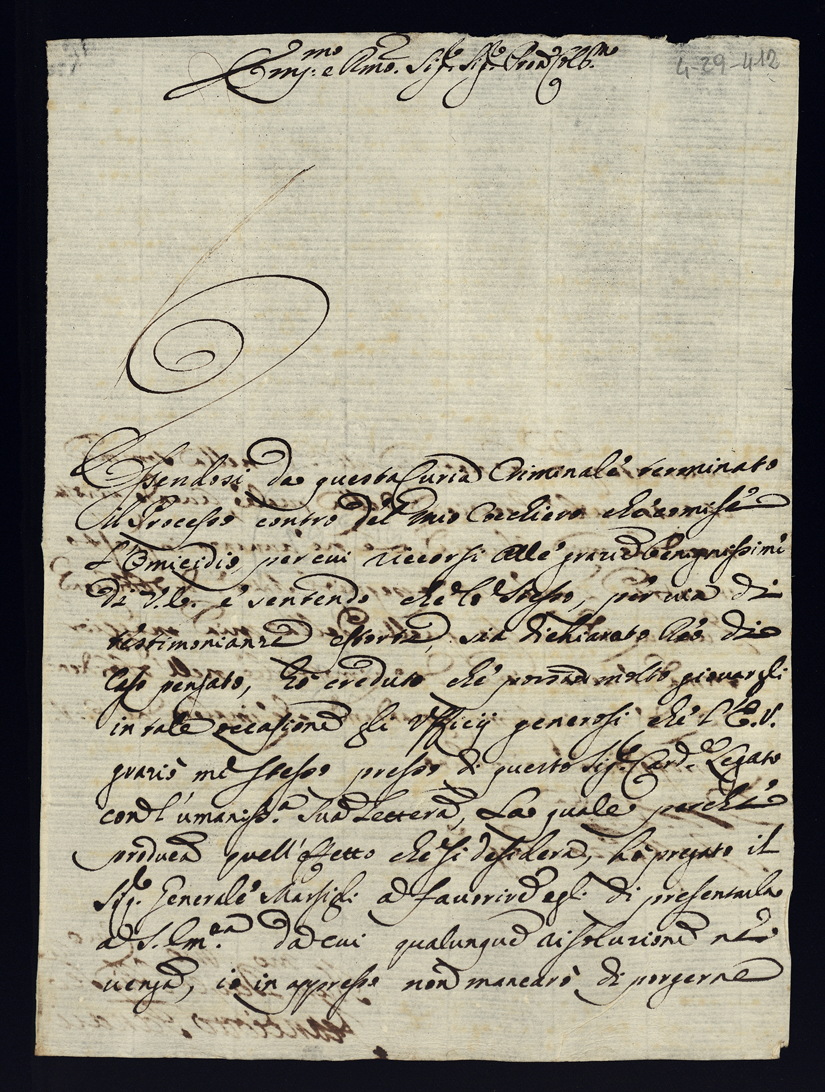 Em.mo e Rmo. Sig.re Sig.re Pron.e Col.mo
4-29-412
Essendosi da questa Curia Criminale terminato
il Processo contro del mio Cocchiero che comise
l'Omicidio per cui ricorsi alle grazie benignissime
di V.E. e sentendo che lo stesso, per via di
testimonianze estorte, sia dichiarato Reo di
Caso pensato, hò creduto che possan molto giovargli
in tale occasione gli Ufficij generosi che l'E.V.
graziò me stesso presso di questo Sig.re Card.le Legato
con l'umaniss.a Sua Lettera, La quale perchè
produca quell'effetto che si desidera, hò pregato il
Sig.re Generale Marsigli a favorire egli di presentarla
a S. Em.za da cui qualunque risoluzione ne
venga, io in appresso non mancarò di porgerne